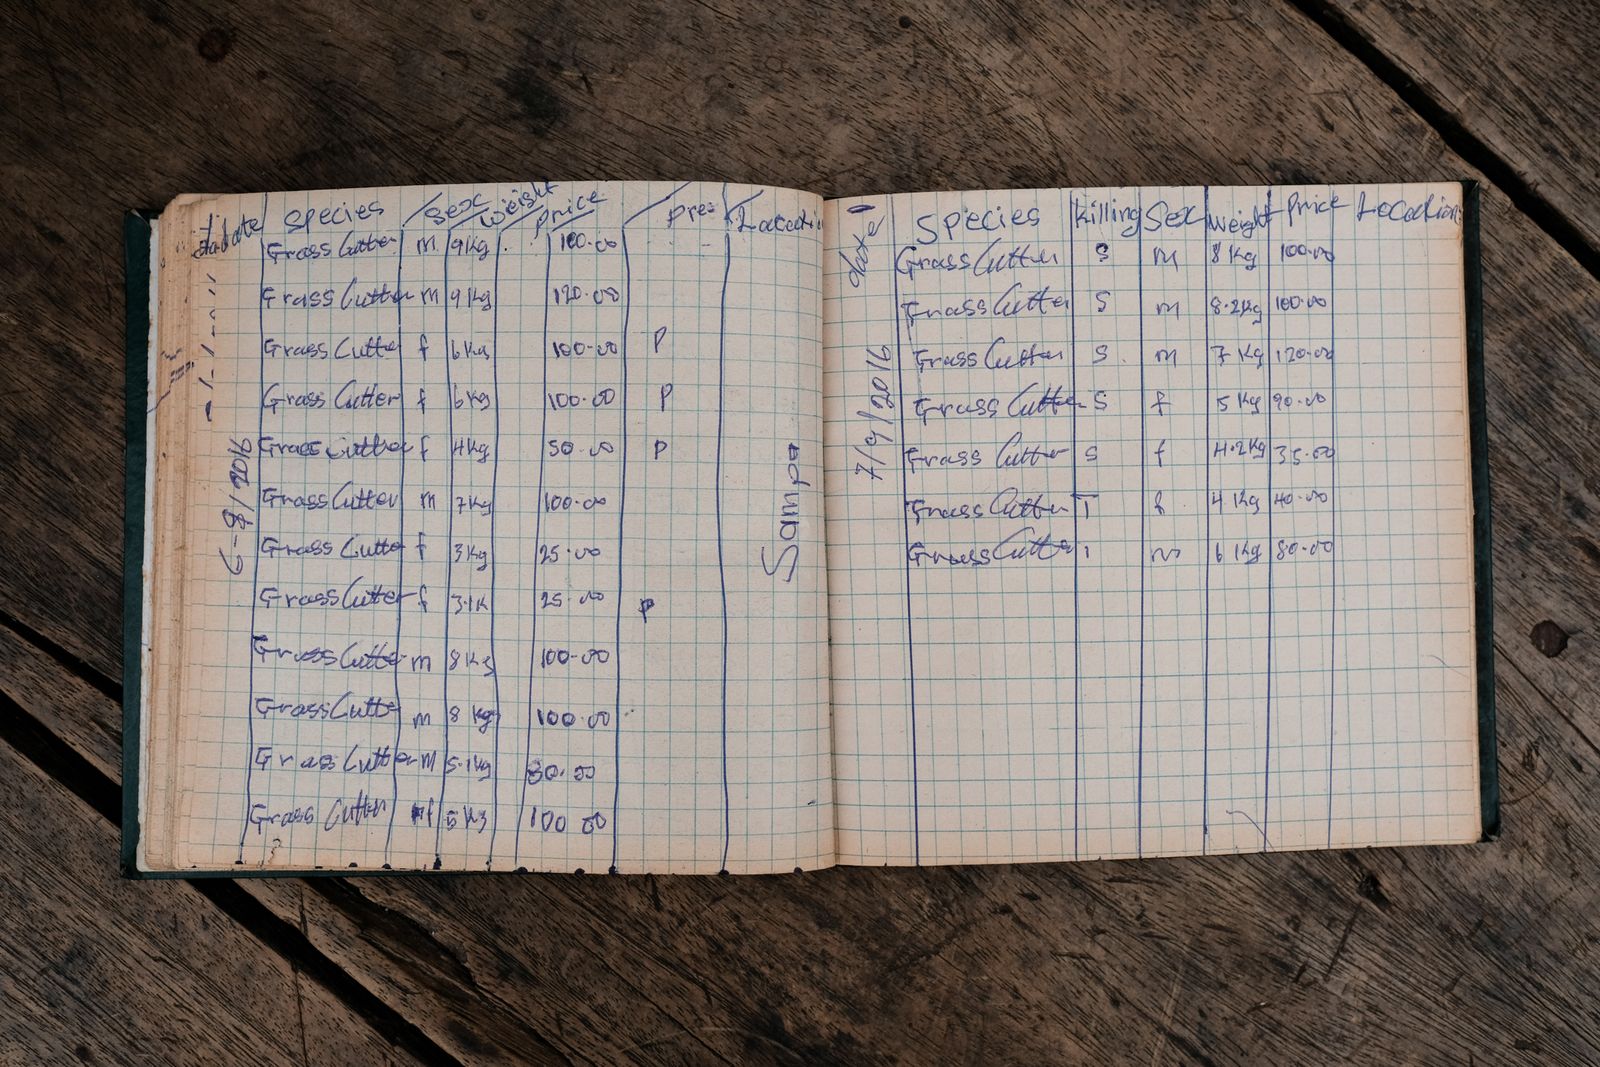 date Species Sex Weight Price Pre= Location
Grass Cutter m 9kg 100.00
Grass Cutter m 9kg 120.00
Grass Cutte f 6kg 100.00 P
Grass Cutter f 6kg 100.00 P
Grass Cutter f 4kg 50.00 P
Grass Cutter m 7kg 100.00
Grass Cutte f 3kg 25.00
Grass Cutter f 3.1k 25.00 P
Grass Cutte m 8kg 100.00
Grass Cutte m 8 kg 100.00
Grass Cutter m 5.1kg 80.00
Grass Cutter f 5kg 100 00
2016
Sampa
date Species Killing Sex Weight Price Location
Grass Cutter S m 8 kg 100.00
Grass Cutte S m 8.2kg 100.00
Grass Cutter S m 7 kg 120.00
Grass Cutter S f 5 kg 90.00
Grass Cutter S f 4.2kg 35.00
Grass Cutter T f 4 kg 40.00
Grass Cutte m 6 kg 80.00
7/9/2016